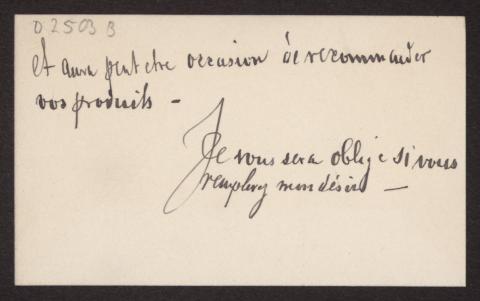 D 2503 B
et aura peut etre occasion de recommander
vos produits -
Je vous sera oblige si vous
remplery mon désir -